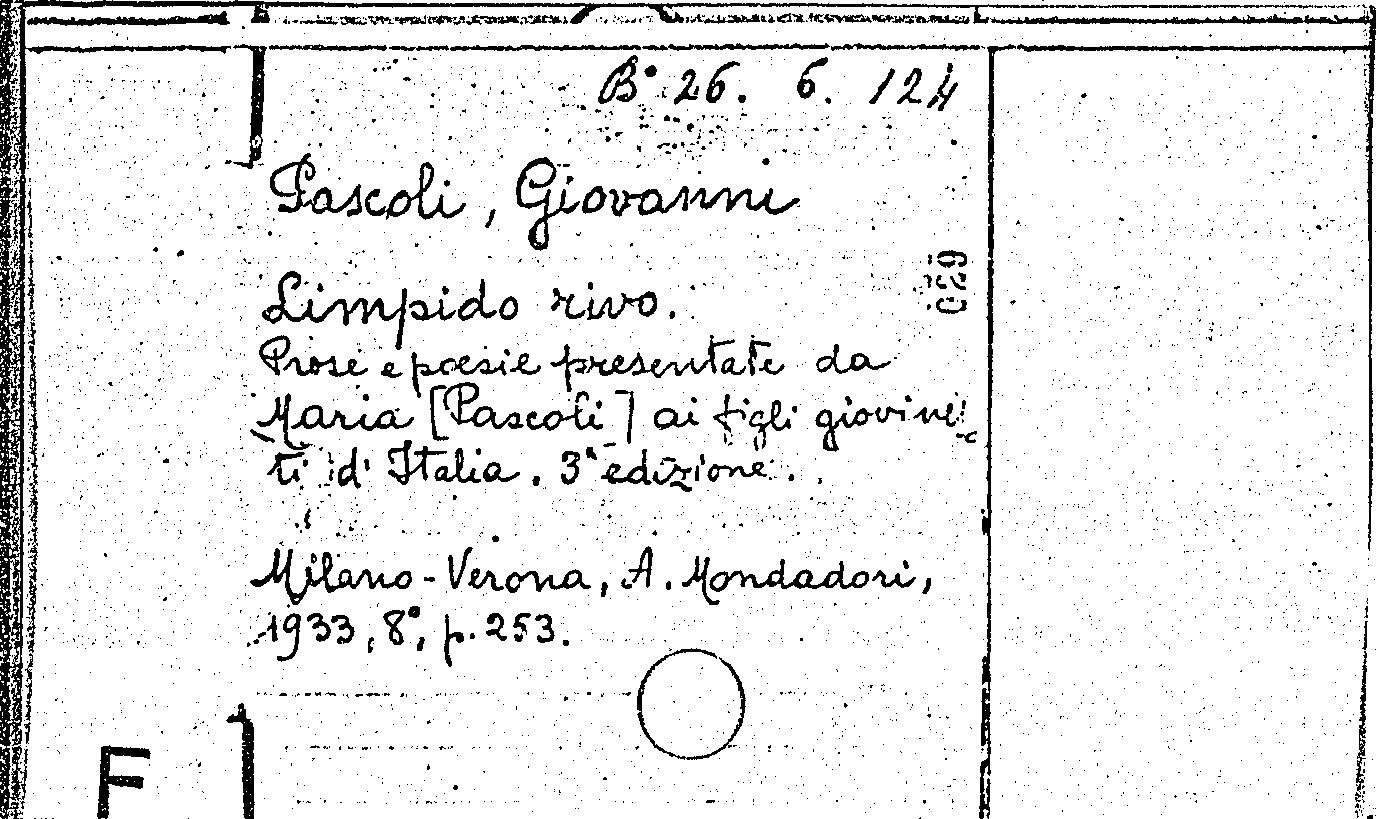 B° 26. 6. 124
Pascoli, Giovanni
029
Limpido rivo.
Prose e poesie presentate da
Maria [Pascoli] ai figli giovinet
ti d'Italia. 3ª edizione.
Milano-Verona, A. Mondadori,
1933, 8°, p. 253.
F